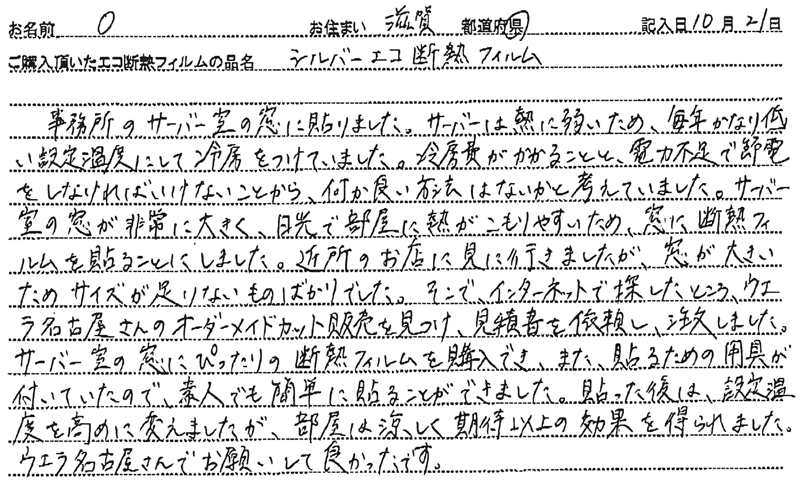 お名前 O お住まい 滋賀 都道府県 記入日10月21日
ご購入頂いたエコ断熱フィルムの品名 シルバーエコ断熱フィルム
事務所のサーバー室の窓に貼りました。サーバーは熱に弱いため、毎年かなり低
い設定温度にして冷房をつけていました。冷房費がかかることと、電力不足で節電
をしなければいけないことから、何か良い方法はないかと考えていました。サーバー
室の窓が非常に大きく、日光で部屋に熱がこもりやすいため、窓に断熱フィ
ルムを貼ることにしました。近所のお店に見に行きましたが、窓が大きい
ためサイズが足りないものばかりでした。そこで、インターネットで探したところ、ウエ
ラ名古屋さんのオーダーメイドカット販売を見つけ、見積書を依頼し、注文しました。
サーバー室の窓にぴったりの断熱フィルムを購入でき、また、貼るための用具が
付いていたので、素人でも簡単に貼ることができました。貼った後は、設定温
度を高めに変えましたが、部屋は涼しく期待以上の効果を得られました。
ウエラ名古屋さんでお願いして良かったです。